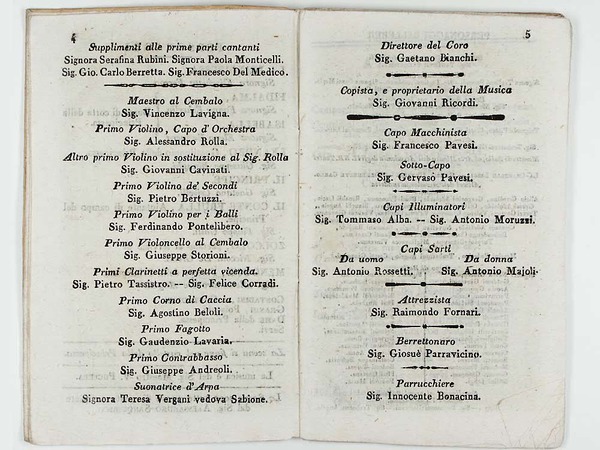 4
Supplimenti alle prime parti cantanti
Signora Serafina Rubini. Signora Paola Monticelli.
Sig. Gio. Carlo Berretta. Sig. Francesco Del Medico.
Maestro al Cembalo
Sig. Vincenzo Lavigna.
Primo Violino, Capo d' Orchestra
Sig. Alessandro Rolla.
Altro primo Violino in sostituzione al Sig. Rolla
Sig. Giovanni Cavinati.
Primo Violino de' Secondi
Sig. Pietro Bertuzzi.
Primo Violino per i Balli
Sig. Ferdinando Pontelibero.
Primo Violoncello al Cembalo
Sig. Giuseppe Storioni.
Primi Clarinetti a perfetta vicenda.
Sig. Pietro Tassistro. -- Sig. Felice Corradi.
Primo Corno di Caccia
Sig. Agostino Beloli.
Primo Fagotto
Sig. Gaudenzio Lavaria.
Primo Contrabbasso
Sig. Giuseppe Andreoli.
Suonatrice d'Arpa
Signora Teresa Vergani vedova Sabione.
5
Direttore del Coro
Sig. Gaetano Bianchi.
Copista, e proprietario della Musica
Sig. Giovanni Ricordi.
Capo Macchinista
Sig. Francesco Pavesi.
Sotto-Capo
Sig. Gervaso Pavesi.
Capi Illuminatori
Sig. Tommaso Alba. -- Sig. Antonio Moruzzi.
Capi Sarti
Da uomo Da donna
Sig. Antonio Rossetti. Sig. Antonio Majoli.
Attrezzista
Sig. Raimondo Fornari.
Berrettonaro
Sig. Giosuè Parravicino.
Parrucchiere
Sig. Innocente Bonacina.